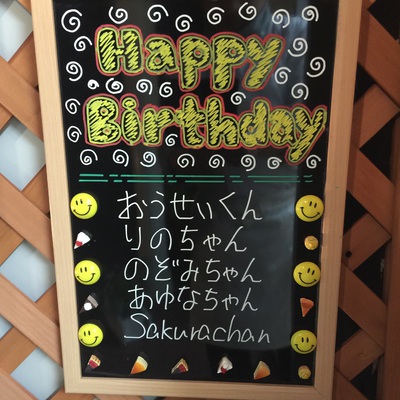 Happy
Birthday
おうせいくん
りのちゃん
のぞみちゃん
あゆなちゃん
Sakurachan